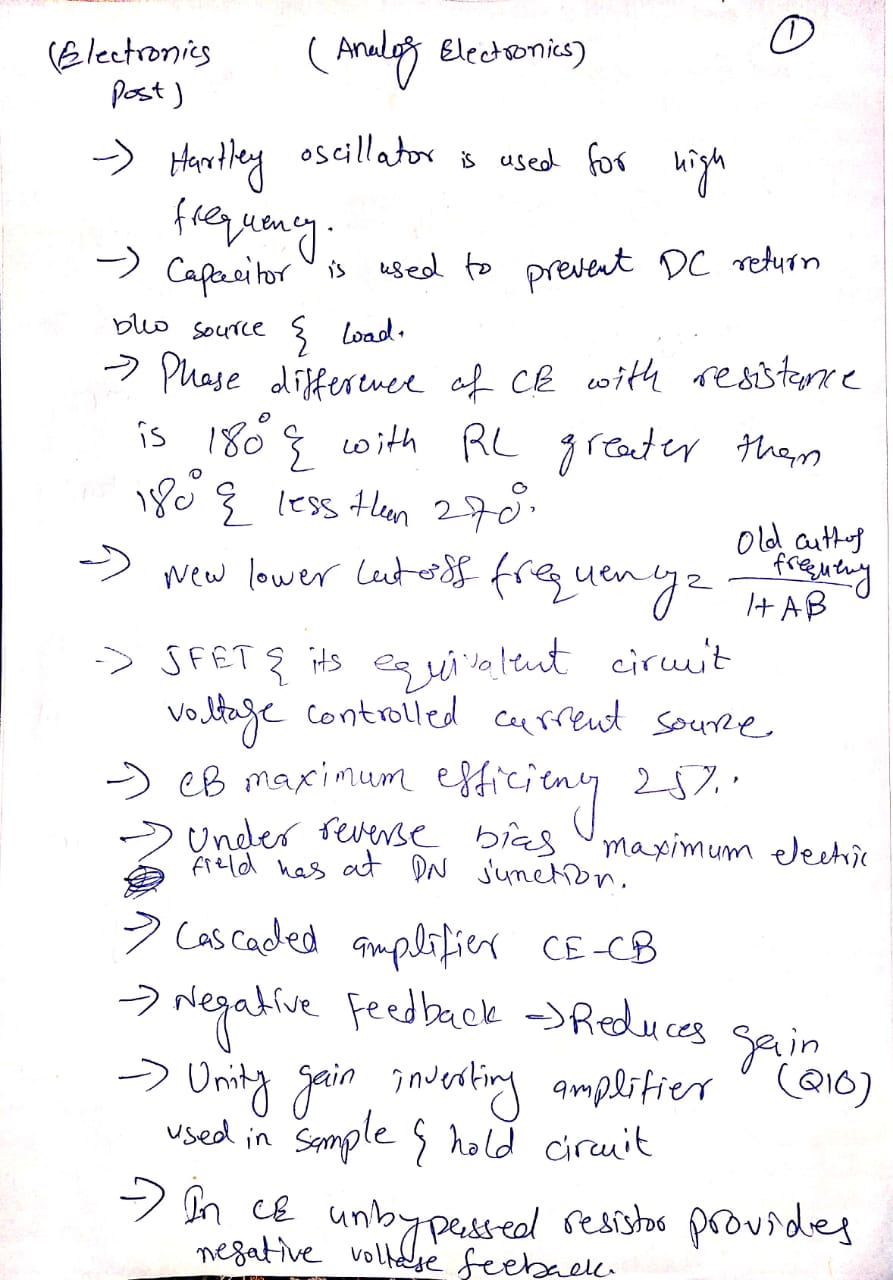 (Electronics (Analog Electronics) 1
Post)
→ Hartley oscillator is used for high
frequency.
→ Capacitor is used to prevent DC return
b/w source & load.
→ Phase difference of CE with resistance
is 180° & with RL greater than
180° & less then 270°.
→ New lower cutoff frequency = Old cuttof frequency / 1+AB
→ JFET & its equivalent circuit
voltage controlled current source
→ CB maximum efficieny 25%.
→ Under reverse bias maximum electric
field has at PN junction.
→ Cascaded amplifier CE-CB
→ Negative Feedback → Reduces gain
→ Unity gain inverting amplifier (Q10)
used in sample & hold circuit
→ In CE unbypassed resistor provides
negative voltage feeback.